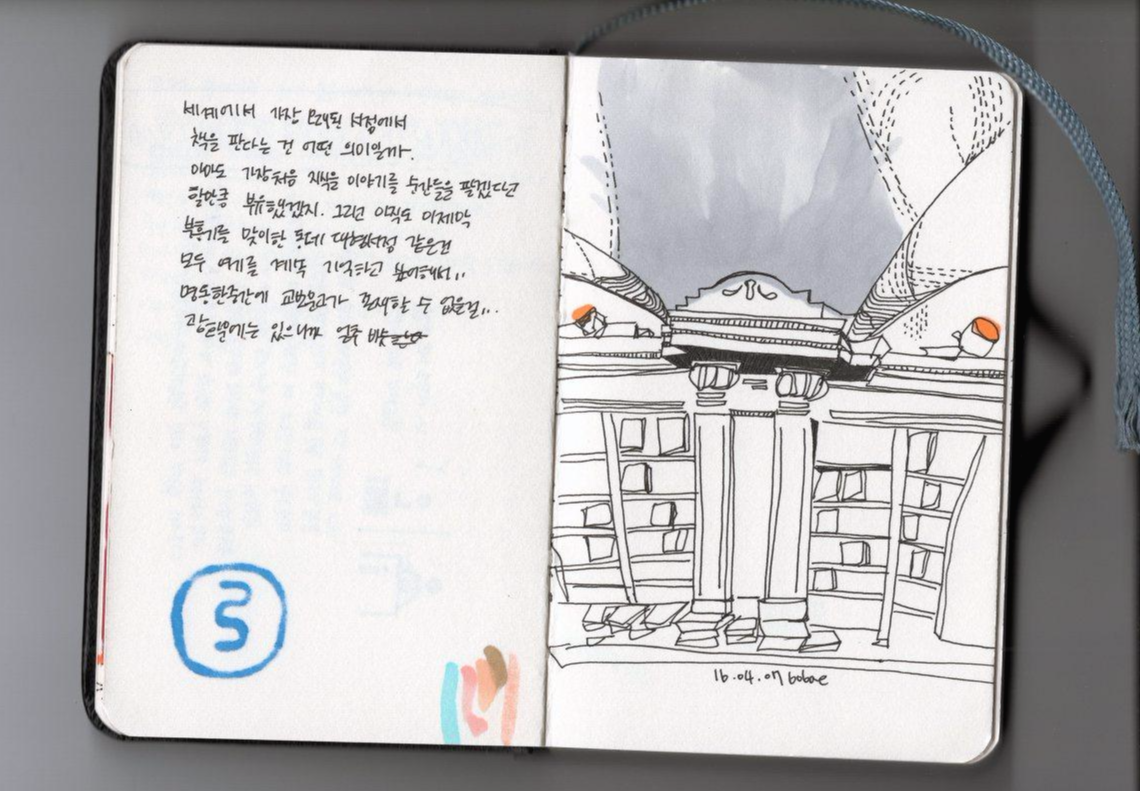 세계에서 가장 오래된 서점에서
책을 판다는 건 어떤 의미일까.
아마도 가장 처음 지식을 이야기를 순간들을 팔겠다던
할만큼 부유했겠지. 그런 아직도 이제막
부흥기를 맞이한 동네 대형서점 같은건
모두 예를 계속 기억하고 싶어해서..
명동한중간에 교보문고가 존재할 수 없을걸...
광화문에는 있으니까
16.04.07 bobae